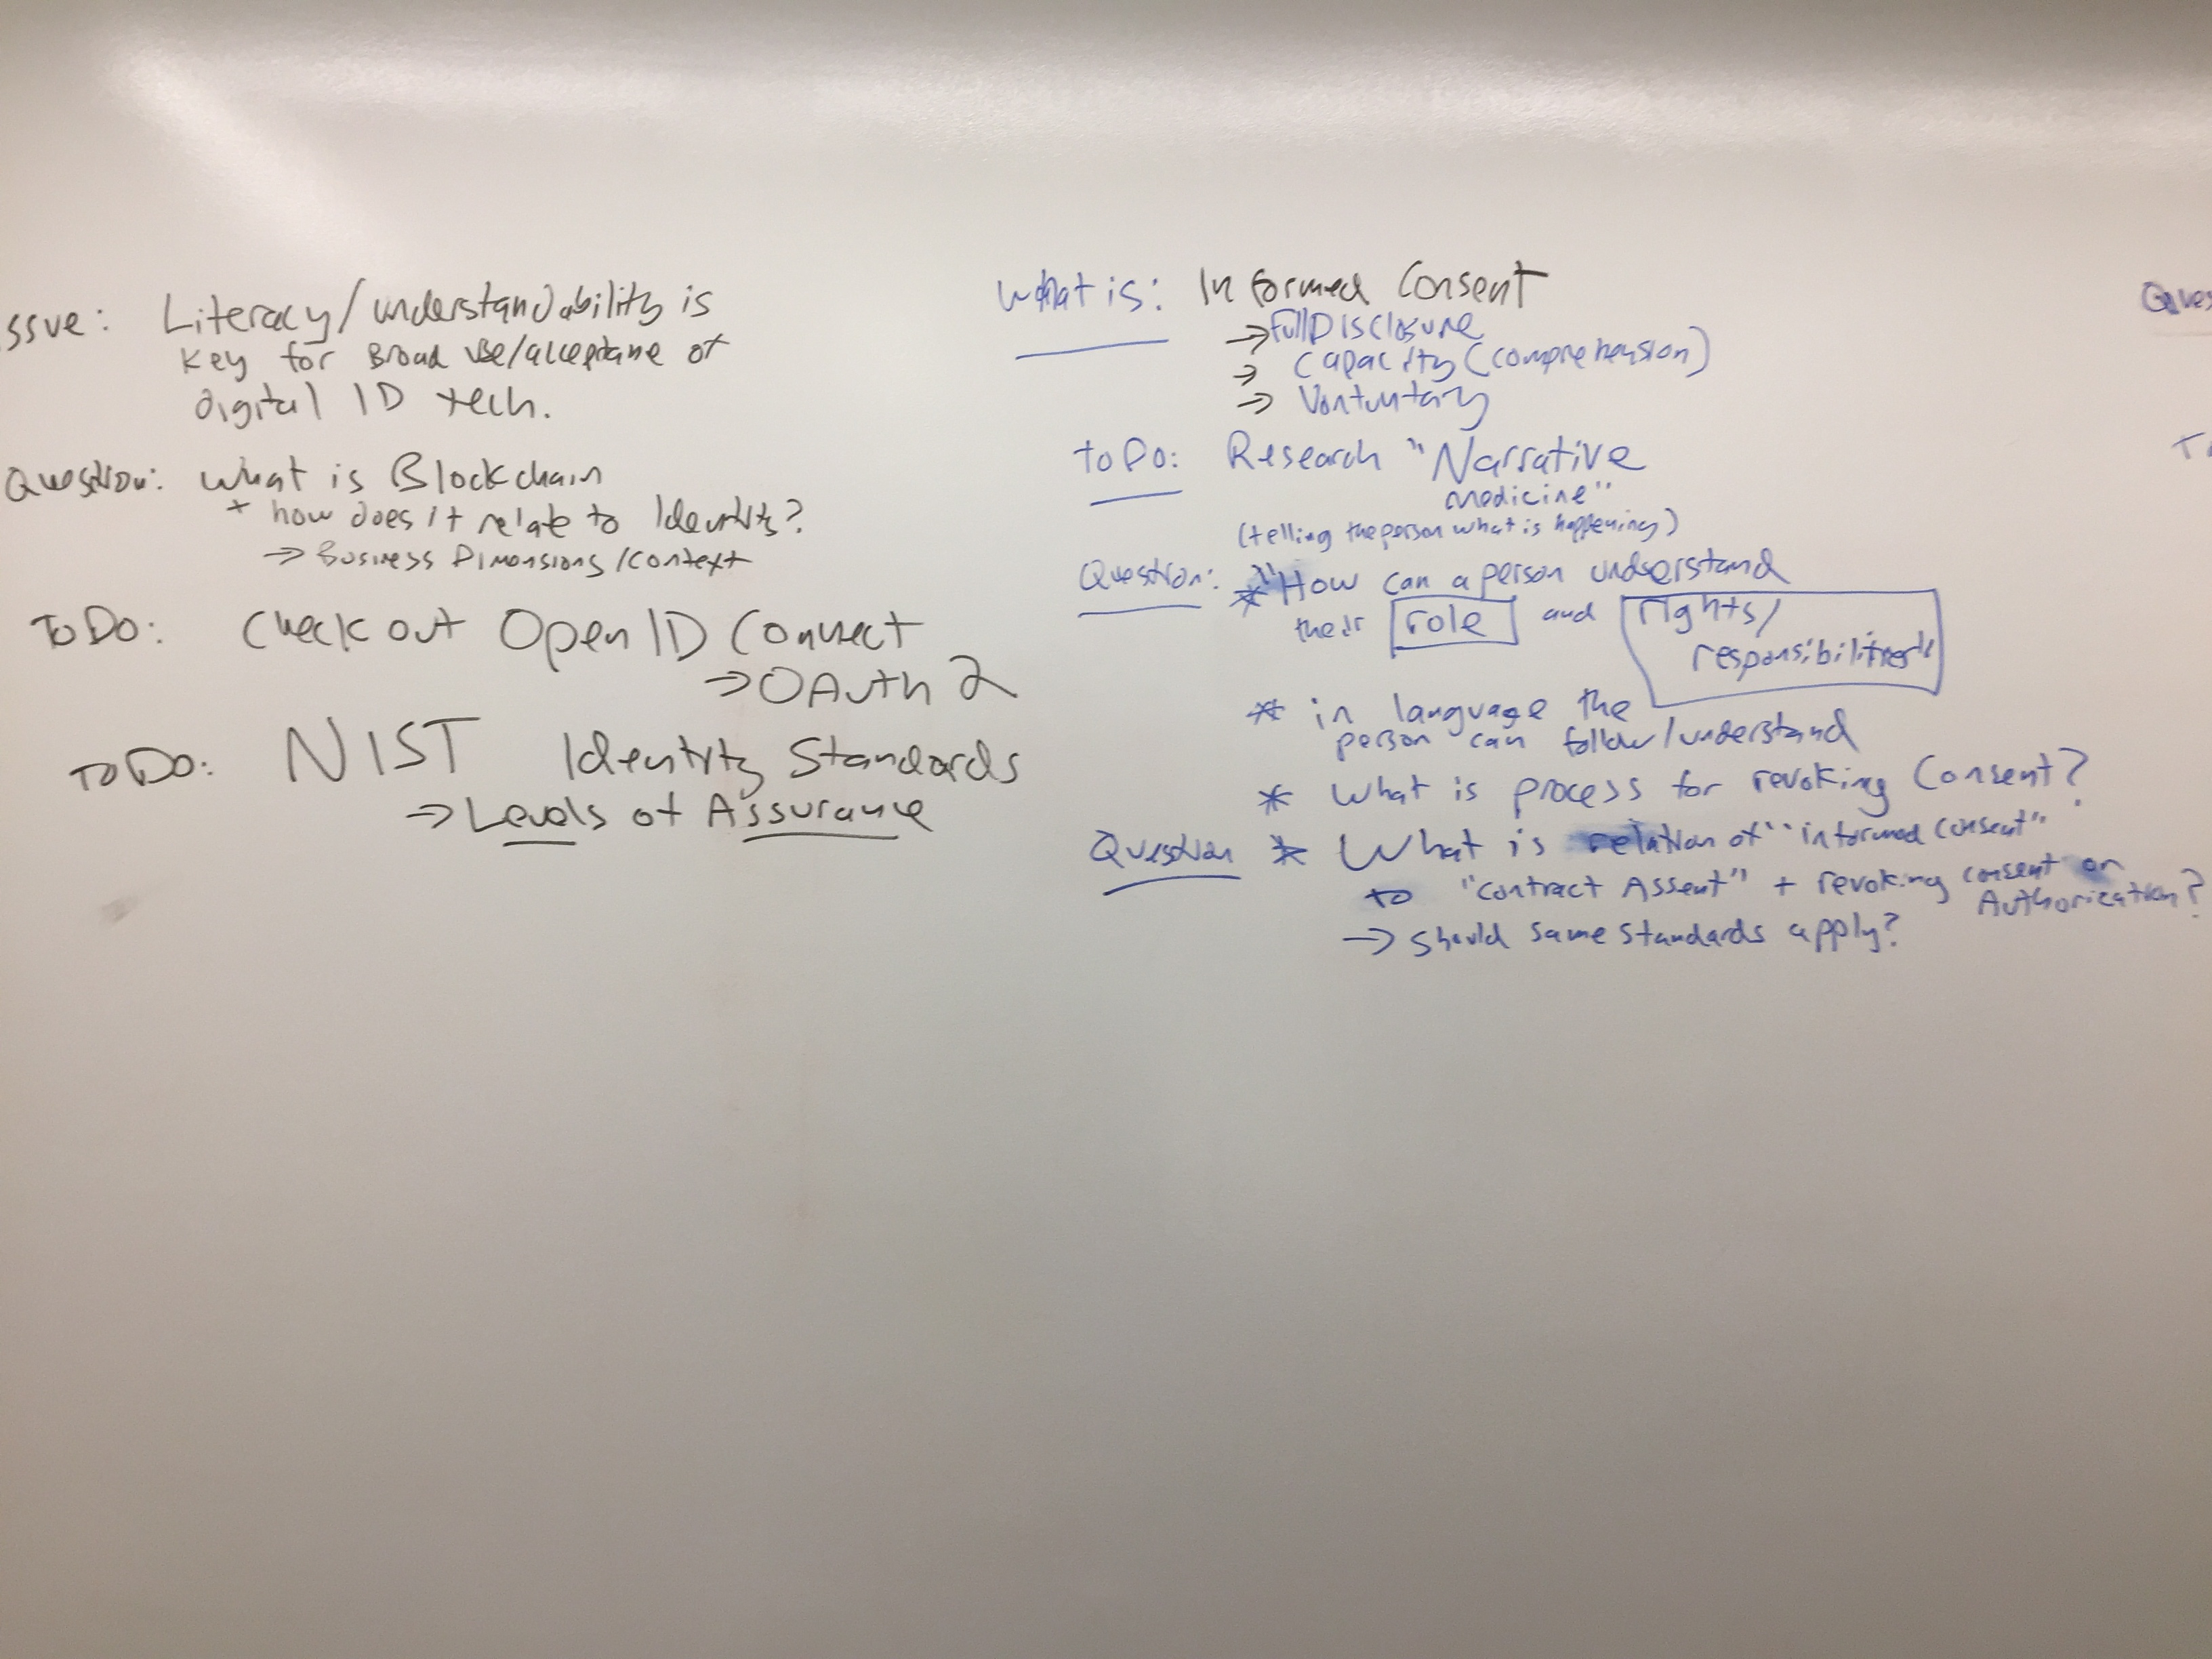 ssue: Literacy/understandability is
key for Broad use/acceptance of
digital ID tech.
Question: what is Blockchain
+ how does it relate to Identity?
→ Business Dimensions/context
ToDo: Check out OpenID Connect
→ OAuth 2
ToDo: NIST Identity Standards
→ Levels of Assurance
What is: Informed Consent
→ Full Disclosure
→ Capacity (comprehension)
→ Voluntary
ToDo: Research "Narrative
medicine"
(telling the person what is happening)
Question: * "How can a person understand
their role and rights/
responsibilities"
* in language the
person can follow/understand
* What is process for revoking Consent?
Question * What is relation of "informed consent"
to "contract Assent" + revoking consent or
Authorization?
→ Should same standards apply?
Ques
T